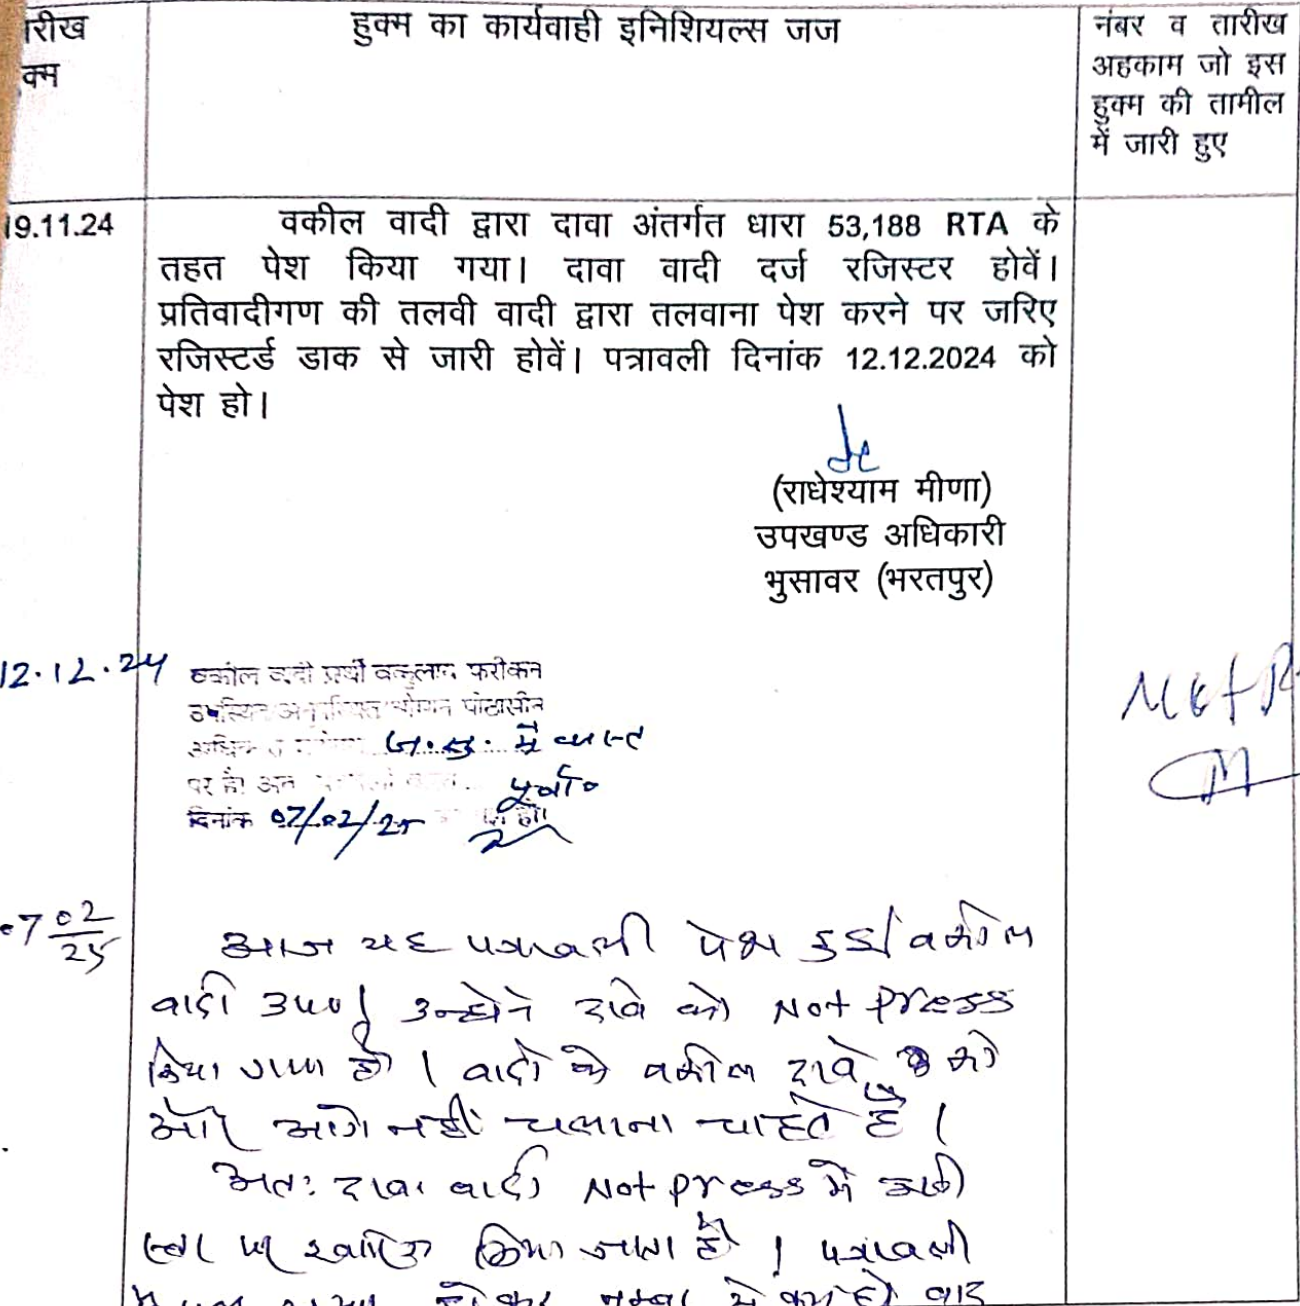 रीख
क्म
हुक्म का कार्यवाही इनिशियल्स जज
नंबर व तारीख
अहकाम जो इस
हुक्म की तामील
में जारी हुए
19.11.24
वकील वादी द्वारा दावा अंतर्गत धारा 53,188 RTA के
तहत पेश किया गया। दावा वादी दर्ज रजिस्टर होवें।
प्रतिवादीगण की तलवी वादी द्वारा तलवाना पेश करने पर जरिए
रजिस्टर्ड डाक से जारी होवें। पत्रावली दिनांक 12.12.2024 को
पेश हो।
(राधेश्याम मीणा)
उपखण्ड अधिकारी
भुसावर (भरतपुर)
12.12.24
वकील वादी प्रार्थी वकुलाय फरीकन
उपस्थित
पर है।
दिनांक 07/02/25 हो।
07 02/25
आज यह पत्रावली पेश हुई। वकील
वादी उप0। उन्होने दावे को Not press
किया गया है। वादी के वकील दावे को
और आगे नहीं चलाना चाहते है।
अतः दावा वादी Not press में इसी
स्तर पर खारिज किया जाता है। पत्रावली